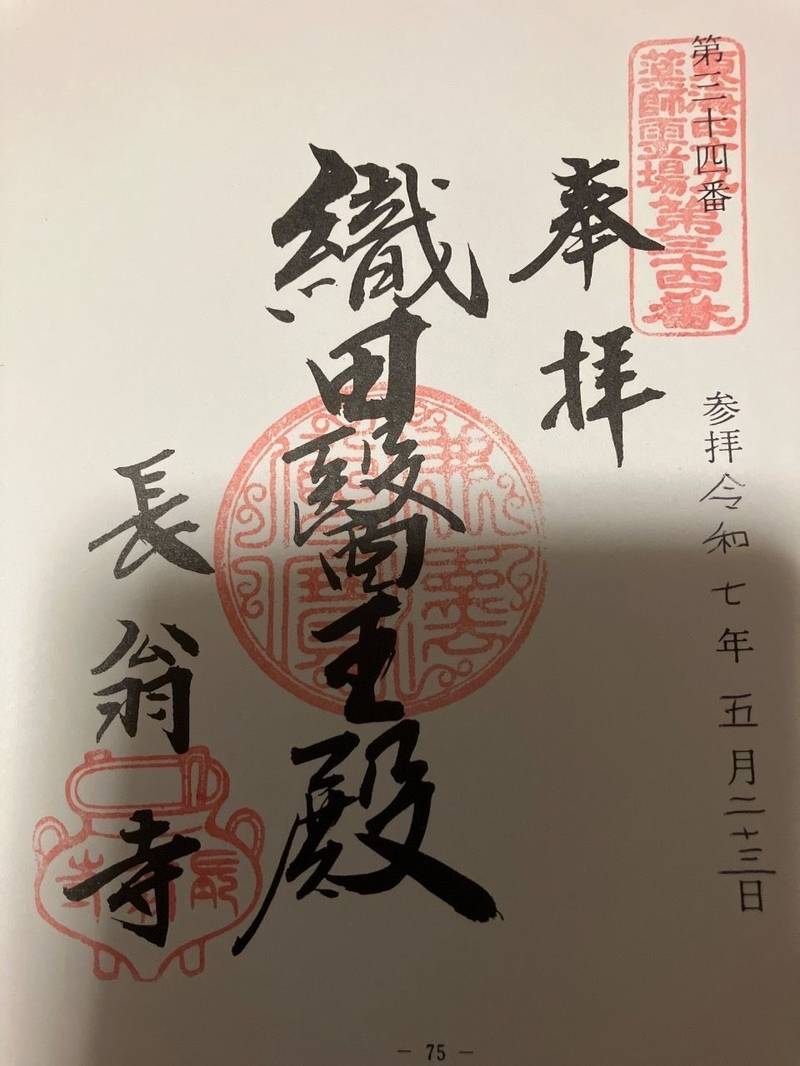 第三十四番
東海四十九
薬師霊場第三十四番
参拝令和七年五月二十三日
奉拝
織田醫王殿
長翁寺
― 75 ―